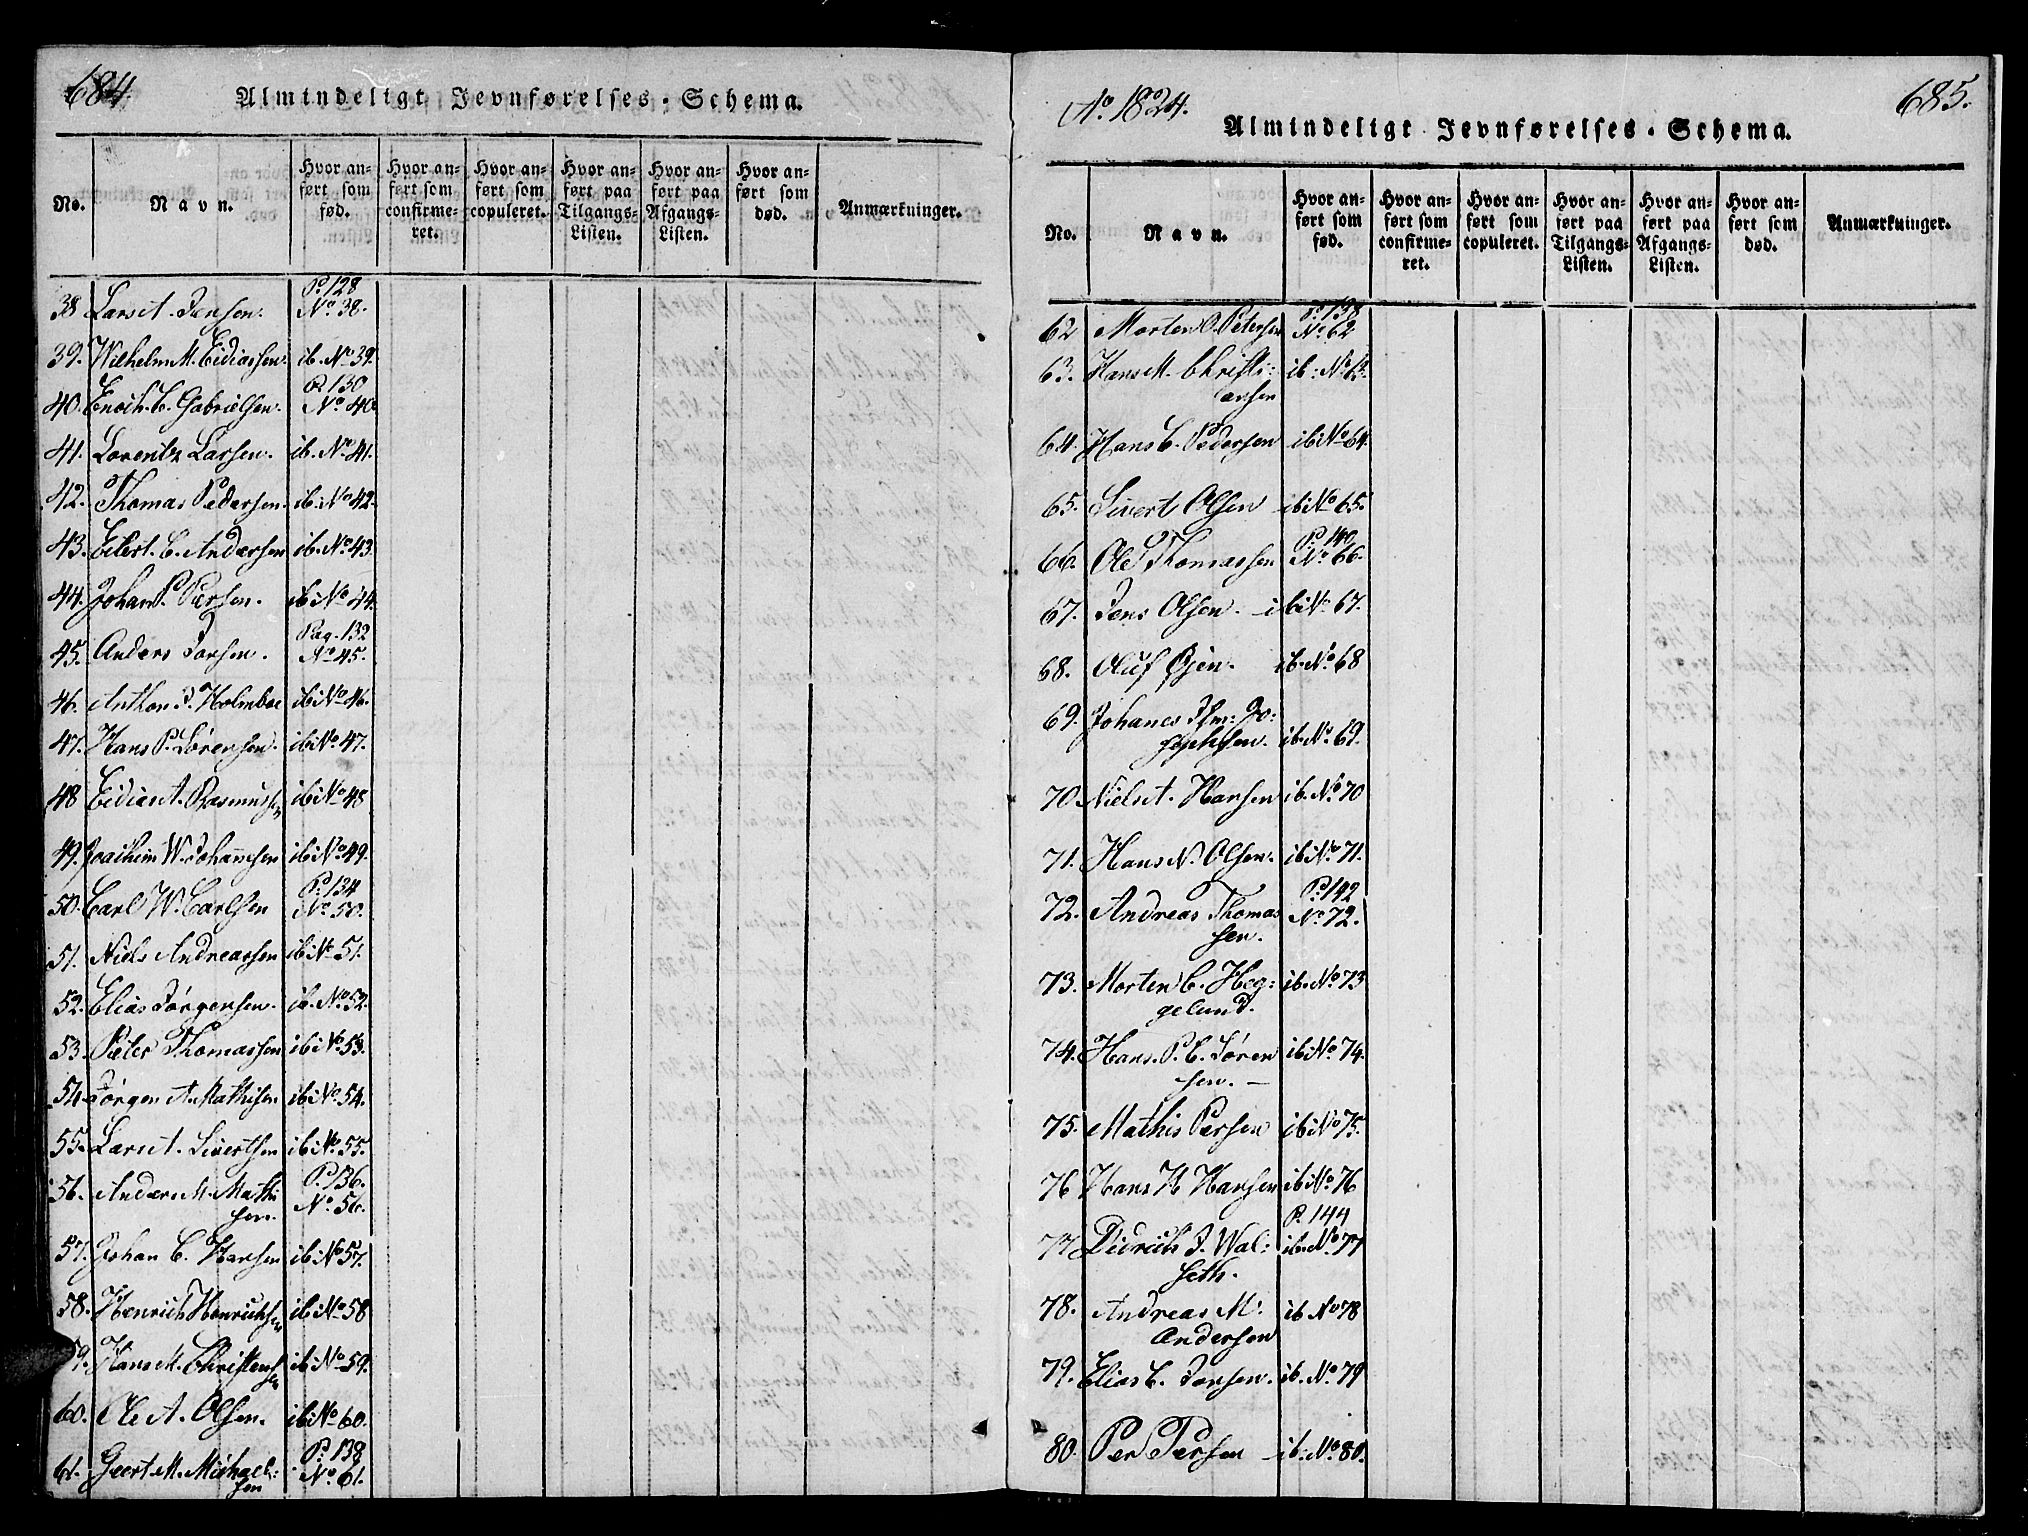 684.
Almindeligt Jevnførelses-Schema.
No.
Navn.
Hvor anført som fød.
Hvor anført som confirmeret.
Hvor anført som copuleret.
Hvor anført paa Tilgangs-Listen.
Hvor anført paa Afgangs-Listen.
Hvor anført som død.
Anmærkninger.
P. 128
38 Lars A. Jensen. No. 38.
39. Wilhelm M. Eidissen. ib. No 39.
P. 130
40. Enoch C. Gabrielsen. No. 40
41. Lorentz Larsen. ib. No. 41.
42. Thomas Pedersen. ib. No 42.
43. Eilert. C. Andersen ib. No. 43
44. Johan P. Persen. ib No 44.
Pag. 132
45. Anders Jonsen. No 45.
46. Anthon J. Holmboe ib No 46.
47. Hans P. Sørensen. ib No. 47.
48 Eidie A. Rasmussen ib No 48
49. Joachim W. Johannsen ib No. 49.
P. 134
50. Carl W. Carlsen No. 50.
51. Niels Andreassen ib No 51.
52. Elias Jørgensen. ib. No. 52.
53. Peter Thomassen ib No 53.
54. Jørgen A. Mathisen ib No. 54.
55. Lars A. Sivertsen ib No 55.
P. 136.
56. Anders M. Mathi No. 56.
sen.
57. Johan C. Hansen ib No 57.
58. Henrich Henrichsen ib No 58
59. Hans M. Christensen ib No 59.
60. Ole A. Olsen. ib No 60.
P. 138
61. Geert M. Michael: No. 61.
sen
Ao. 1824.
685.
Almindeligt Jevnførelses-Schema.
No.
Navn.
Hvor anført som fød.
Hvor anført som confirmeret.
Hvor anført som copuleret.
Hvor anført paa Tilgangs-Listen.
Hvor anført paa Afgangs-Listen.
Hvor anført som død.
Anmærkninger.
P. 138
62 Morten O. Petersen No 62
63. Hans M. Christi: ib. No 63.
ansen
64. Hans C. Pedersen ib No 64.
65. Sivert Olsen ib No 65.
P. 140
66. Ole Thomassen No 66.
67. Jens Olsen. ib No. 67.
68. Oluf Øien. ib. No. 68
69. Johanes Jo:
sephsen. ib. No. 69.
70. Niels A. Hansen ib. No. 70
71. Hans N. Olsen. ib No. 71.
P. 142
72. Andreas Thomas No. 72.
sen.
73. Morten C. Heg: ib. No 73
gelund.
74. Hans. P. C. Søren ib No. 74.
sen. —
75. Mathis Persen ib No 75.
76 Hans H. Hansen ib No. 76
P. 144
77 Didrich J. Wal: ib No. 77
seth.
78. Andreas M. ib No 78
Andersen
79. Elias C. Jonsen. ib. No. 79
80. Per Persen ib. No. 80.